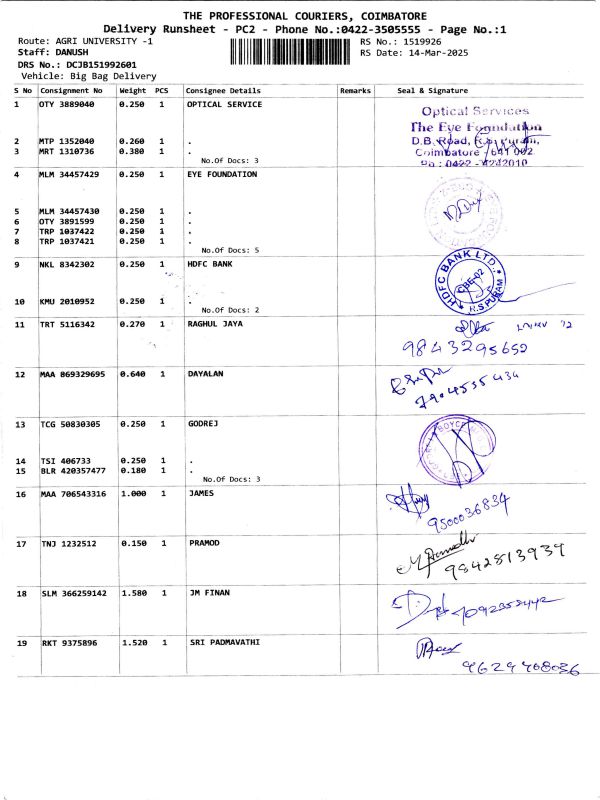 THE PROFESSIONAL COURIERS, COIMBATORE
Delivery Runsheet - PC2 - Phone No.:0422-3505555 - Page No.:1
Route: AGRI UNIVERSITY -1
RS No.: 1519926
Staff: DANUSH
RS Date: 14-Mar-2025
DRS No.: DCJB151992601
Vehicle: Big Bag Delivery
S No Consignment No Weight PCS Consignee Details Remarks Seal & Signature
1 OTY 3889040 0.250 1 OPTICAL SERVICE
Optical Services
The Eye Foundation
D.B. Road, R.S. Puram,
2 MTP 1352040 0.260 1 .
3 MRT 1310736 0.380 1 .
Coimbatore - 641 002
No.Of Docs: 3
Ph : 0422 - 4242010
4 MLM 34457429 0.250 1 EYE FOUNDATION
5 MLM 34457430 0.250 1 .
6 OTY 3891599 0.250 1 .
7 TRP 1037422 0.250 1 .
8 TRP 1037421 0.250 1 .
No.Of Docs: 5
9 NKL 8342302 0.250 1 HDFC BANK
HDFC BANK LTD.
CBE-02
R.S PURAM
10 KMU 2010952 0.250 1 .
No.Of Docs: 2
11 TRT 5116342 0.270 1 RAGHUL JAYA
9843295652
12 MAA 869329695 0.640 1 DAYALAN
7904535434
13 TCG 50830305 0.250 1 GODREJ
14 TSI 406733 0.250 1 .
15 BLR 420357477 0.180 1 .
No.Of Docs: 3
16 MAA 706543316 1.000 1 JAMES
9500036834
17 TNJ 1232512 0.150 1 PRAMOD
9842813939
18 SLM 366259142 1.580 1 JM FINAN
19 RKT 9375896 1.520 1 SRI PADMAVATHI
9629408036